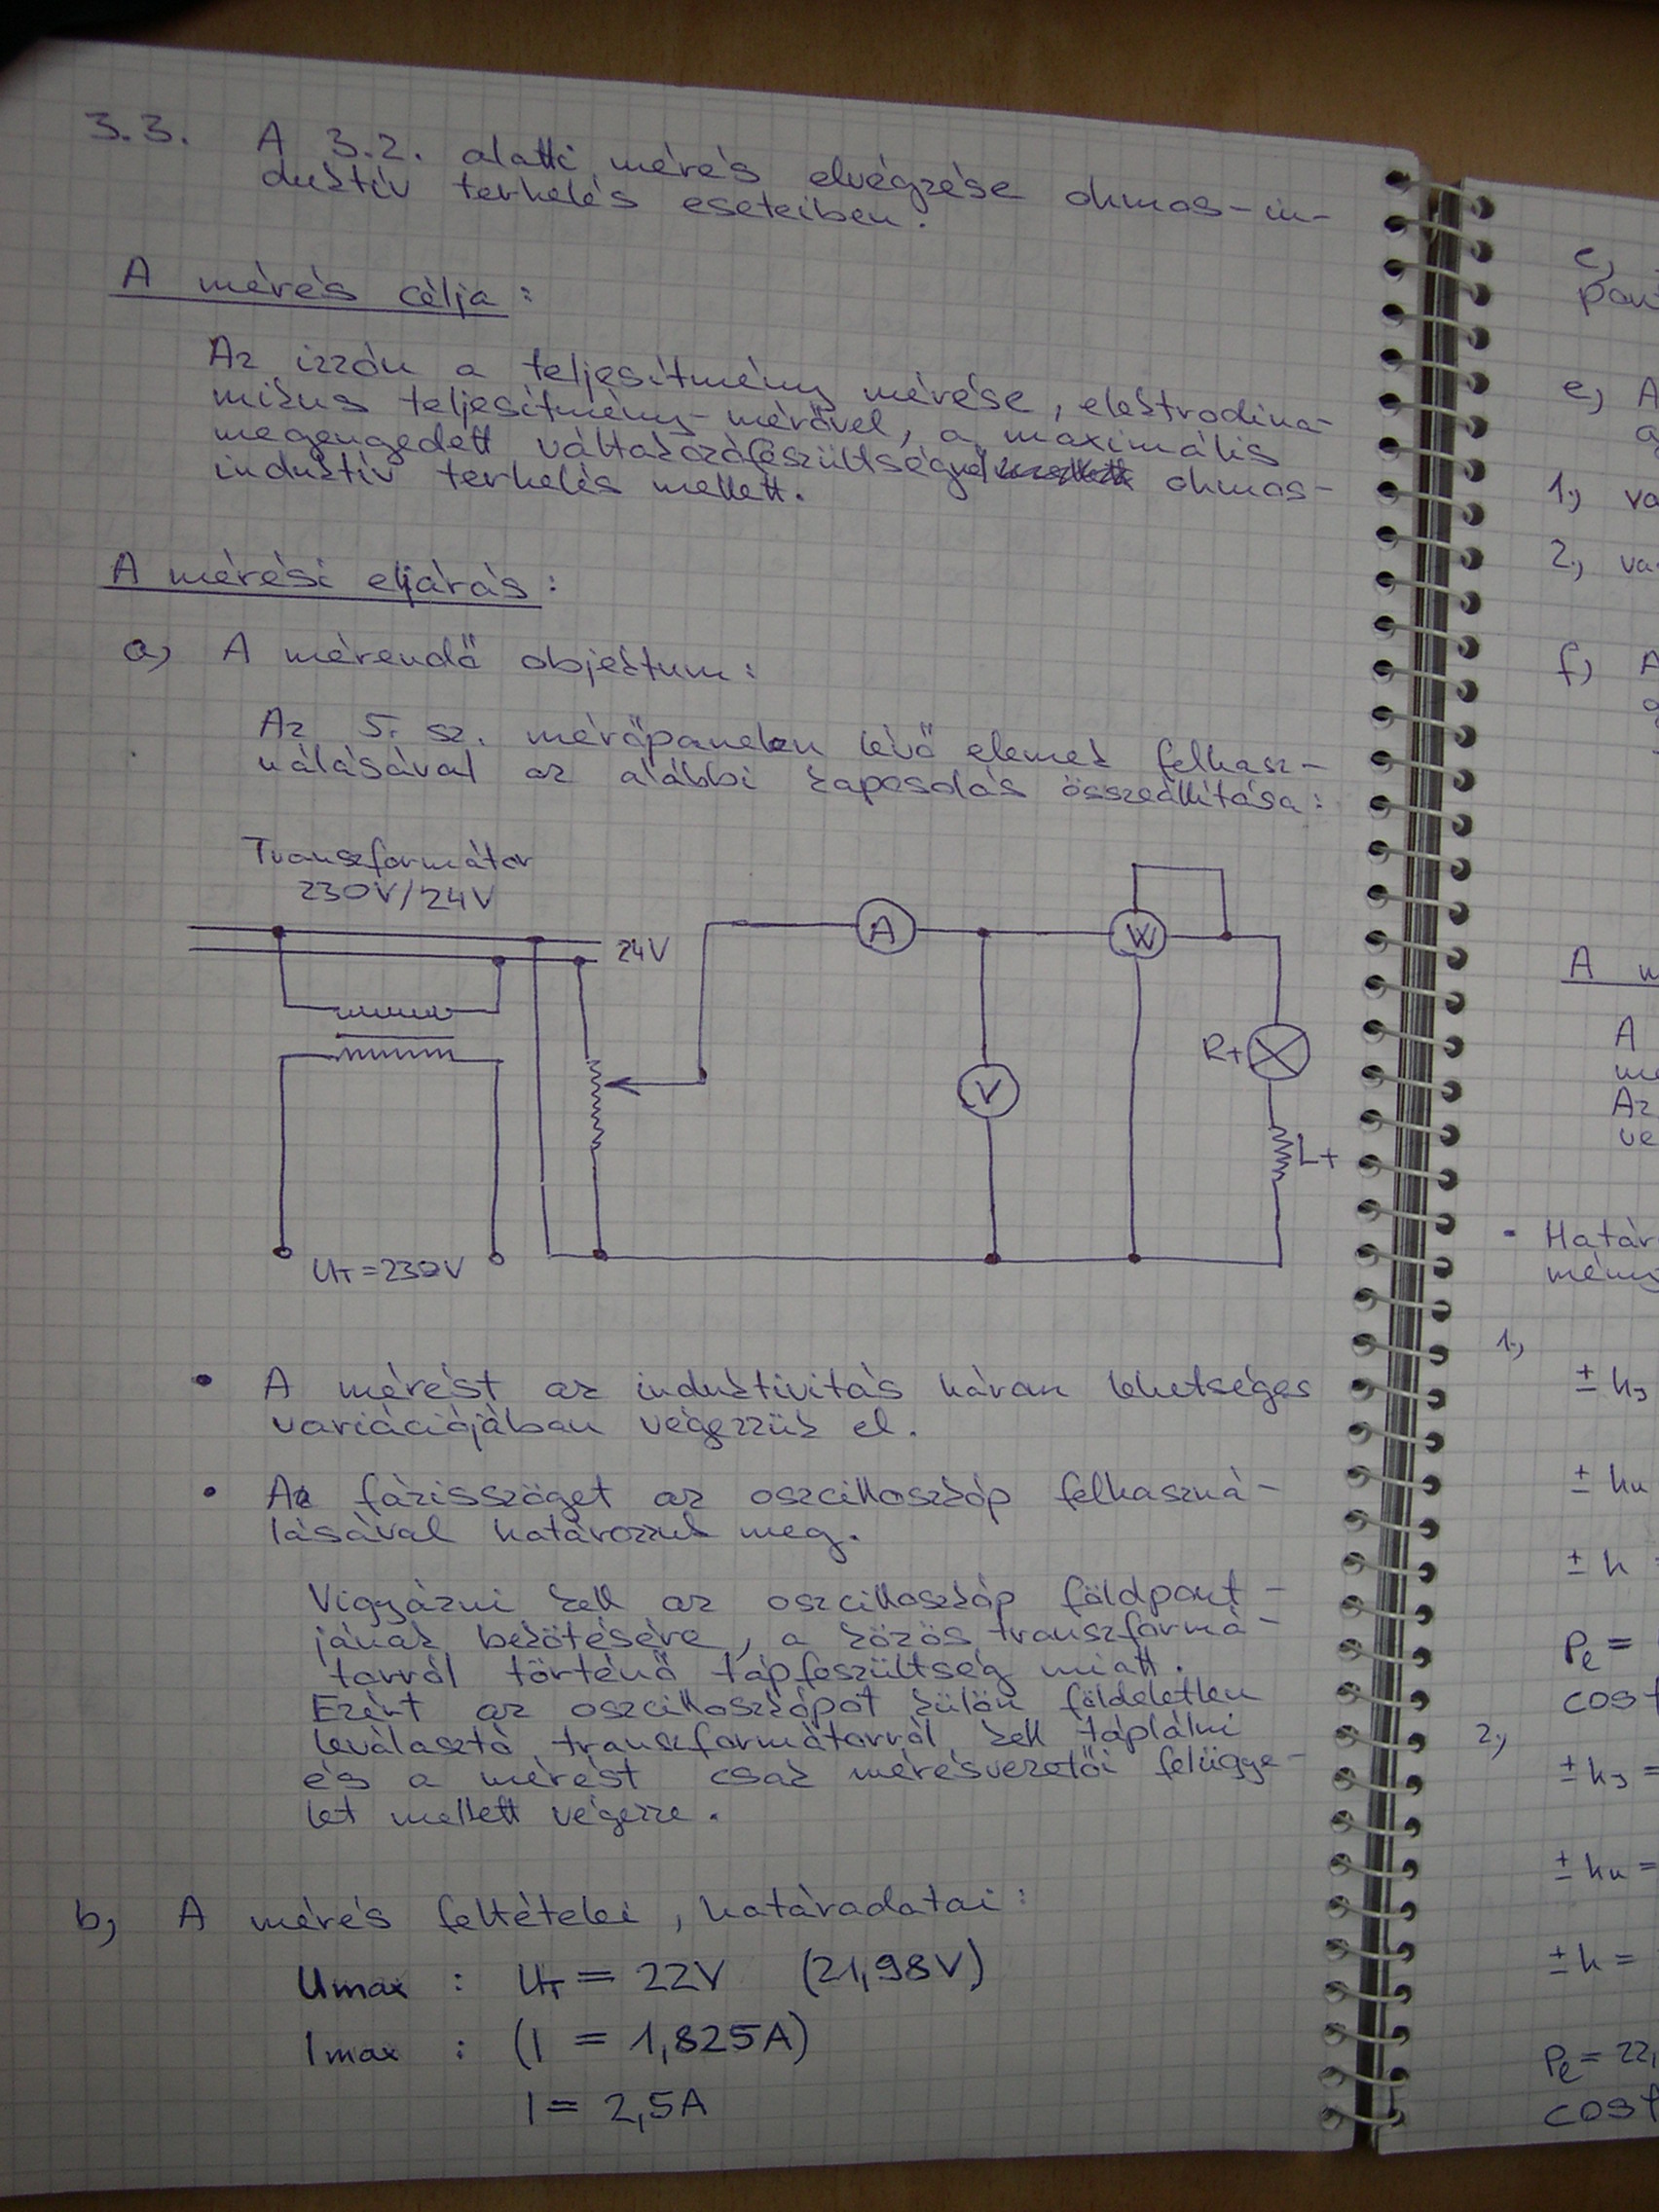 3.3. A 3.2. alatti mérés elvégzése ohmos-in-
duktív terhelés eseteiben.
A mérés célja:
Az izzón a teljesítmény mérése, elektrodina-
mikus teljesítmény-mérővel, a maximális
megengedett váltakozófeszültségnél ohmos-
induktív terhelés mellett.
A mérési eljárás:
a, A mérendő objektum:
Az 5. sz. mérőpanelen lévő elemek felhasz-
nálásával az alábbi kapcsolás összeállítása:
Transzformátor
230V/24V
24V
A
W
V
R+
L+
UT=230V
• A mérést az induktivitás három lehetséges
variációjában végezzük el.
• A fázisszöget az oszcilloszkóp felhaszná-
lásával határozzuk meg.
Vigyázni kell az oszcilloszkóp földpont-
jának bekötésére, a közös transzformá-
torról történő tápfeszültség miatt.
Ezért az oszcilloszkópot külön földeletlen
leválasztó transzformátorról kell táplálni
és a mérést csak mérésvezetői felügye-
let mellett végezze.
b, A mérés feltételei, határadatai:
Umax : UT = 22V (21,98V)
Imax : (I = 1,825A)
I = 2,5A
e, A
1,
2,
f, A
A
A
Az
• Határ
1,
± hu
± h
Pe =
2,
± hu =
± h =
Pe = 22,